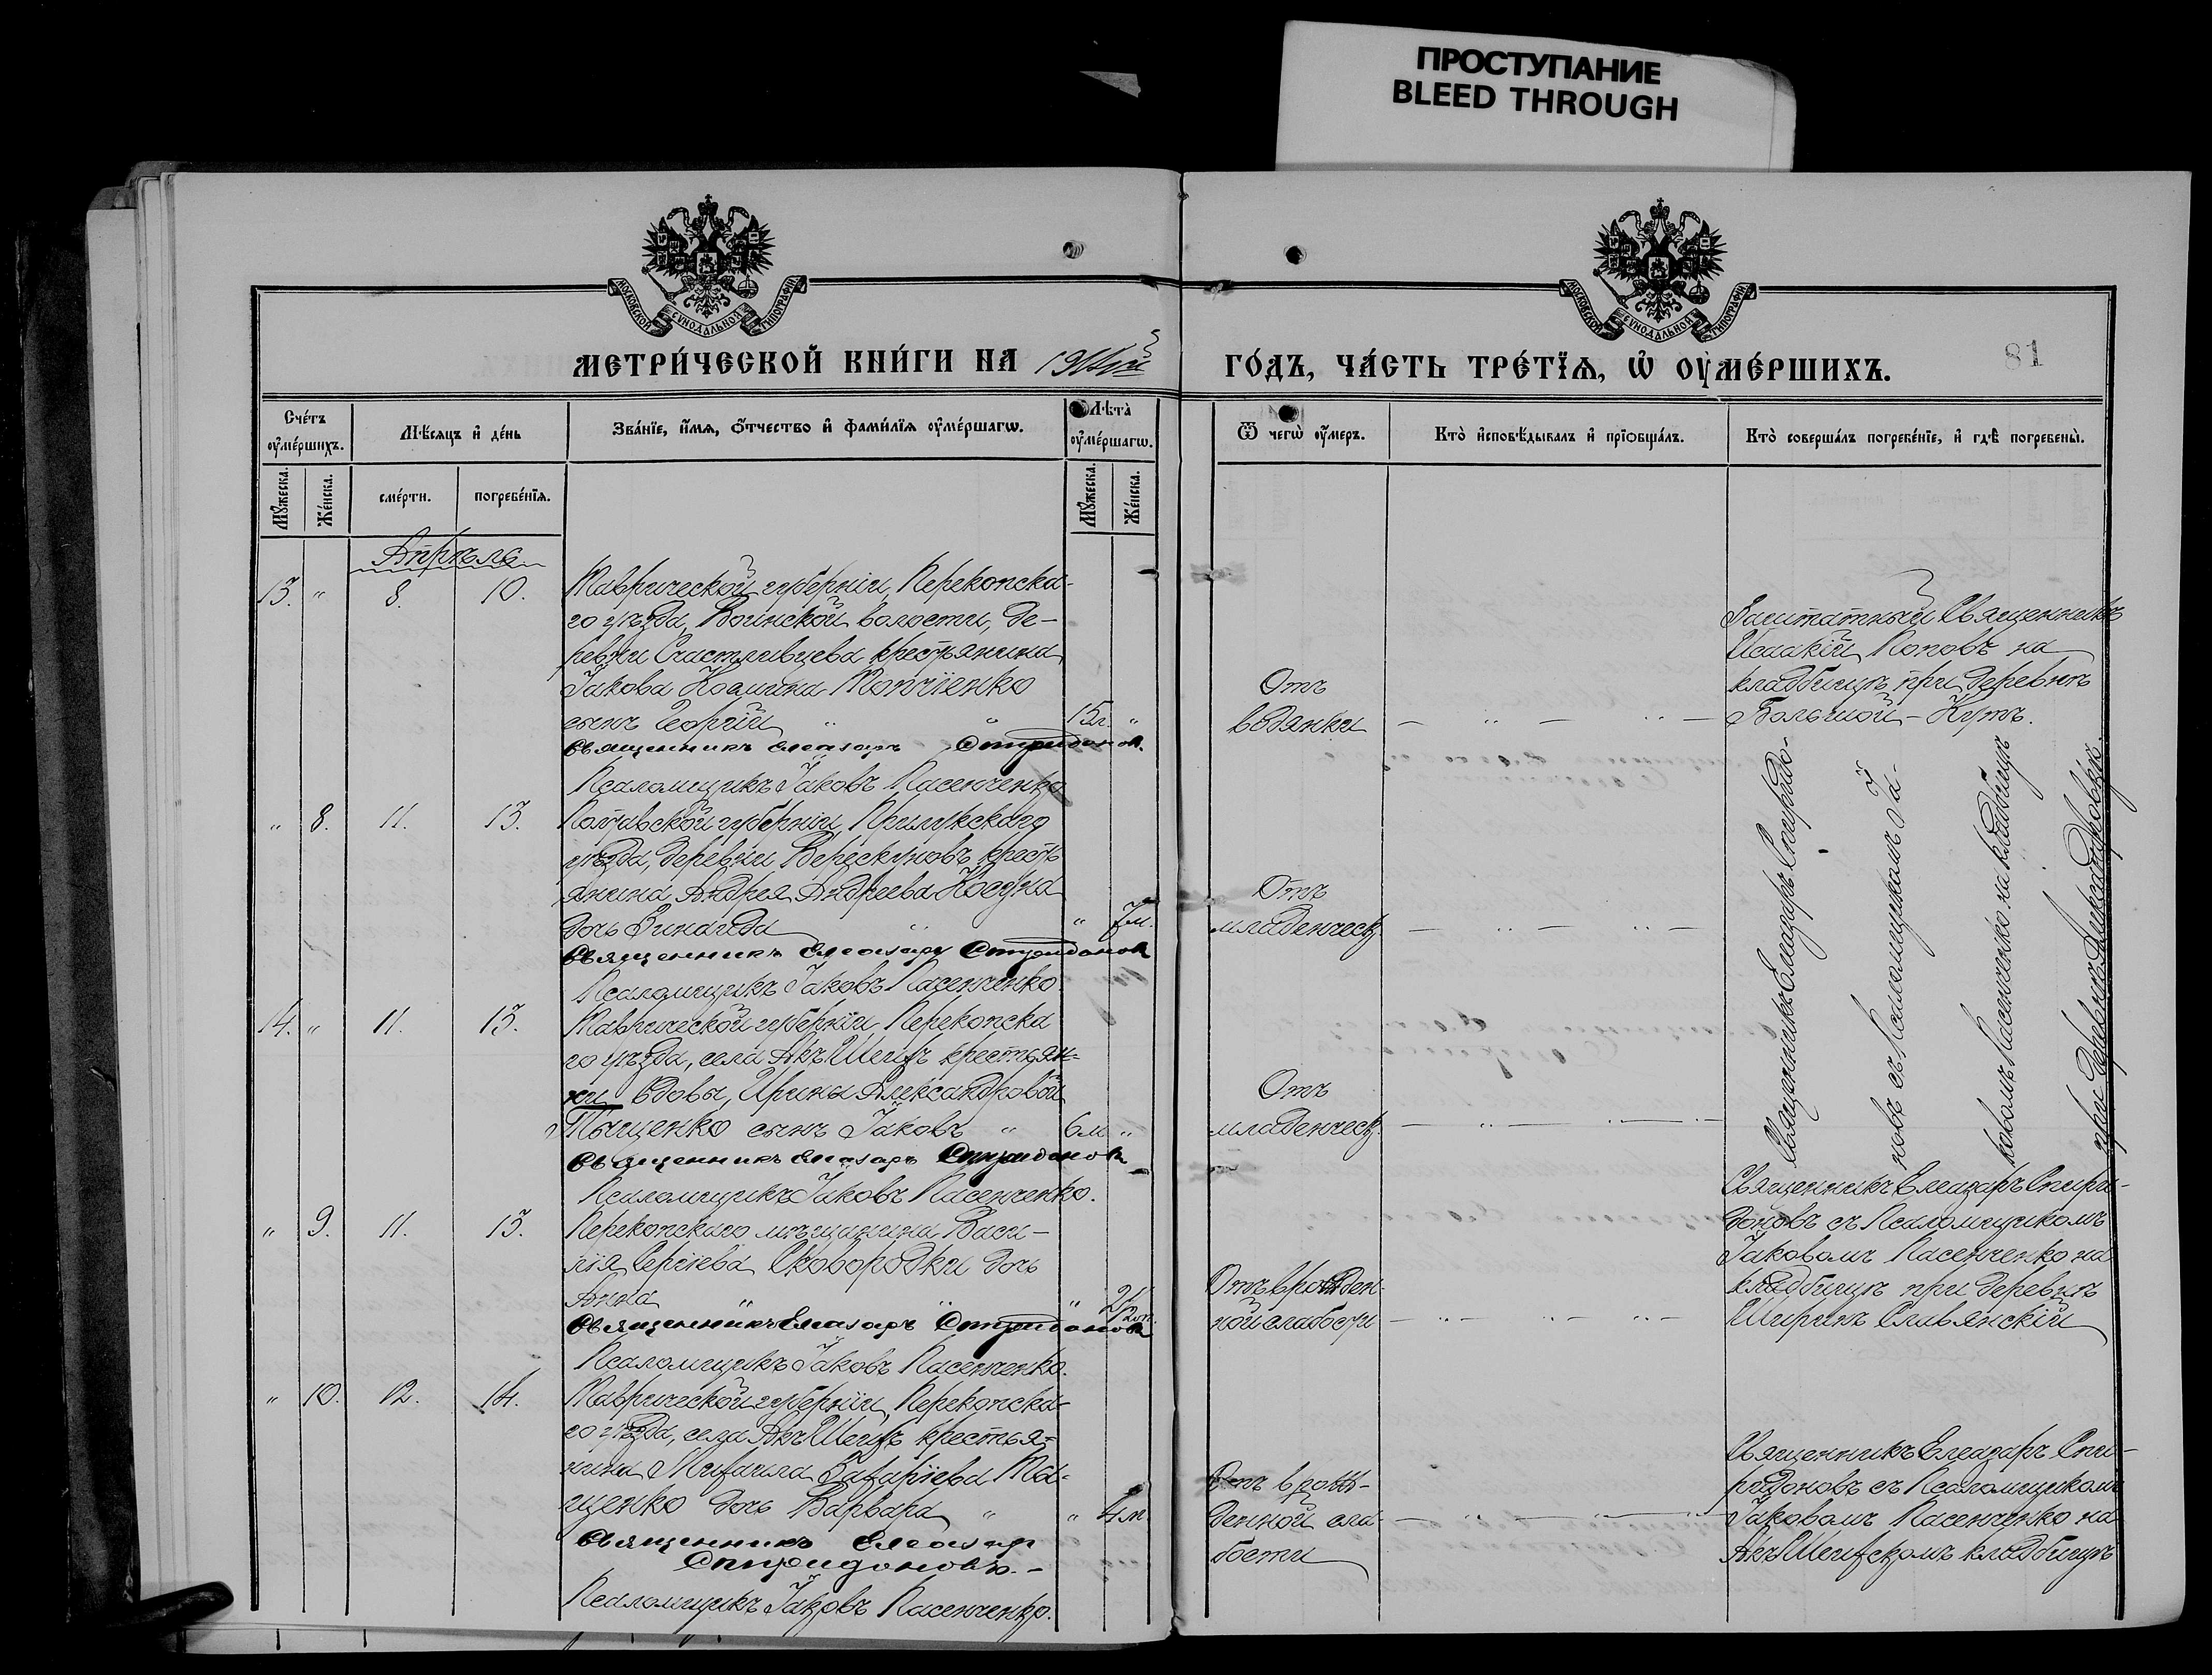 ПРОСТУПАНИЕ
BLEED THROUGH
МОСКОВСКОЙ СѴНОДАЛЬНОЙ ТИПОГРАФІИ
МОСКОВСКОЙ СѴНОДАЛЬНОЙ ТИПОГРАФІИ
МЕТРИ́ЧЕСКОЙ КНИ́ГИ НА
ГО́ДЪ, ЧА́СТЬ ТРЕ́ТЇѦ, Ѡ҆ ОУ҆МЕ́РШИХЪ.
81
Сче́тъ оу҆ме́ршихъ.
Мѣ́сяцъ и҆ де́нь
Зва́нїе, и҆́мѧ, ѻ҆́тчество и҆ фами́лїѧ оу҆ме́ршагѡ.
Лѣ́та̀ оу҆ме́ршагѡ.
Ѿ чегѡ̀ оу҆́меръ.
Кто̀ и҆сповѣ́дывалъ и҆ прїѡбща́лъ.
Кто̀ соверша́лъ погребе́нїе, и҆ гдѣ̀ погребены̀.
Мꙋ́жеска.
Же́нска.
сме́рти.
погребе́нїѧ.
Мꙋ́жеска.
Же́нска.
Апрѣль
13. " 8. 10. Таврической губерніи, Перекопска-
го уѣзда, Воинской волости, де-
ревни Счастливцева крестьянина
Іакова
сынъ Георгій " " 15г. "
Священникъ Елеазаръ Спиридонов.
Псаломщикъ Іаковъ Пасенченко
Отъ
водянки
Заштатный Священникъ
Исаакій Поповъ на
кладбищѣ при деревнѣ
Большой-Кутъ.
" 8. 11. 13. Полтавской губерніи, Прилукскаго
уѣзда, деревни крестъ
янина Андрея Андреева
дочь Зинаида " " 7м.
Священникъ Елеазаръ Спиридонов
Псаломщикъ Іаковъ Пасенченко
Отъ
младенческ.
Священникъ Елеазаръ Спиридо-
новъ съ Псаломщикомъ Іа-
ковомъ Пасенченко на кладбищѣ
при деревнѣ Александровкѣ.
14. " 11. 13. Таврической губерніи, Перекопска
го уѣзда, села Акъ Шеихъ крестьян-
ки вдовы, Ирины Александровой
Тыщенко сынъ Іаковъ " 6м "
Священникъ Елеазаръ Спиридонов
Псаломщикъ Іаковъ Пасенченко.
Отъ
младенческ.
" 9. 11. 13. Перекопскаго мѣщанина Васи-
лія Сергіева Сковородки дочь
Анна " " "
Священникъ Елеазаръ Спиридонов
Псаломщикъ Іаковъ Пасенченко.
Отъ врожден-
ной слабости
Священникъ Елеазаръ Спири-
доновъ съ Псаломщикомъ
Іаковомъ Пасенченко на
кладбищѣ при деревнѣ
Ширинъ Славянскій
" 10. 12. 14. Таврической губерніи, Перекопска-
го уѣзда, села Акъ Шеихъ крестья-
нина Михаила Захаріева
щенко дочь Варвара " " 4м.
Священникъ Елеазар
Спиридоновъ.-
Псаломщикъ Іаковъ Пасенченко.
Отъ врож-
денной сла-
бости
Священникъ Елеазаръ Спи-
ридоновъ съ Псаломщиком
Іаковомъ Пасенченко на
Акъ Шеихскомъ кладбищѣ